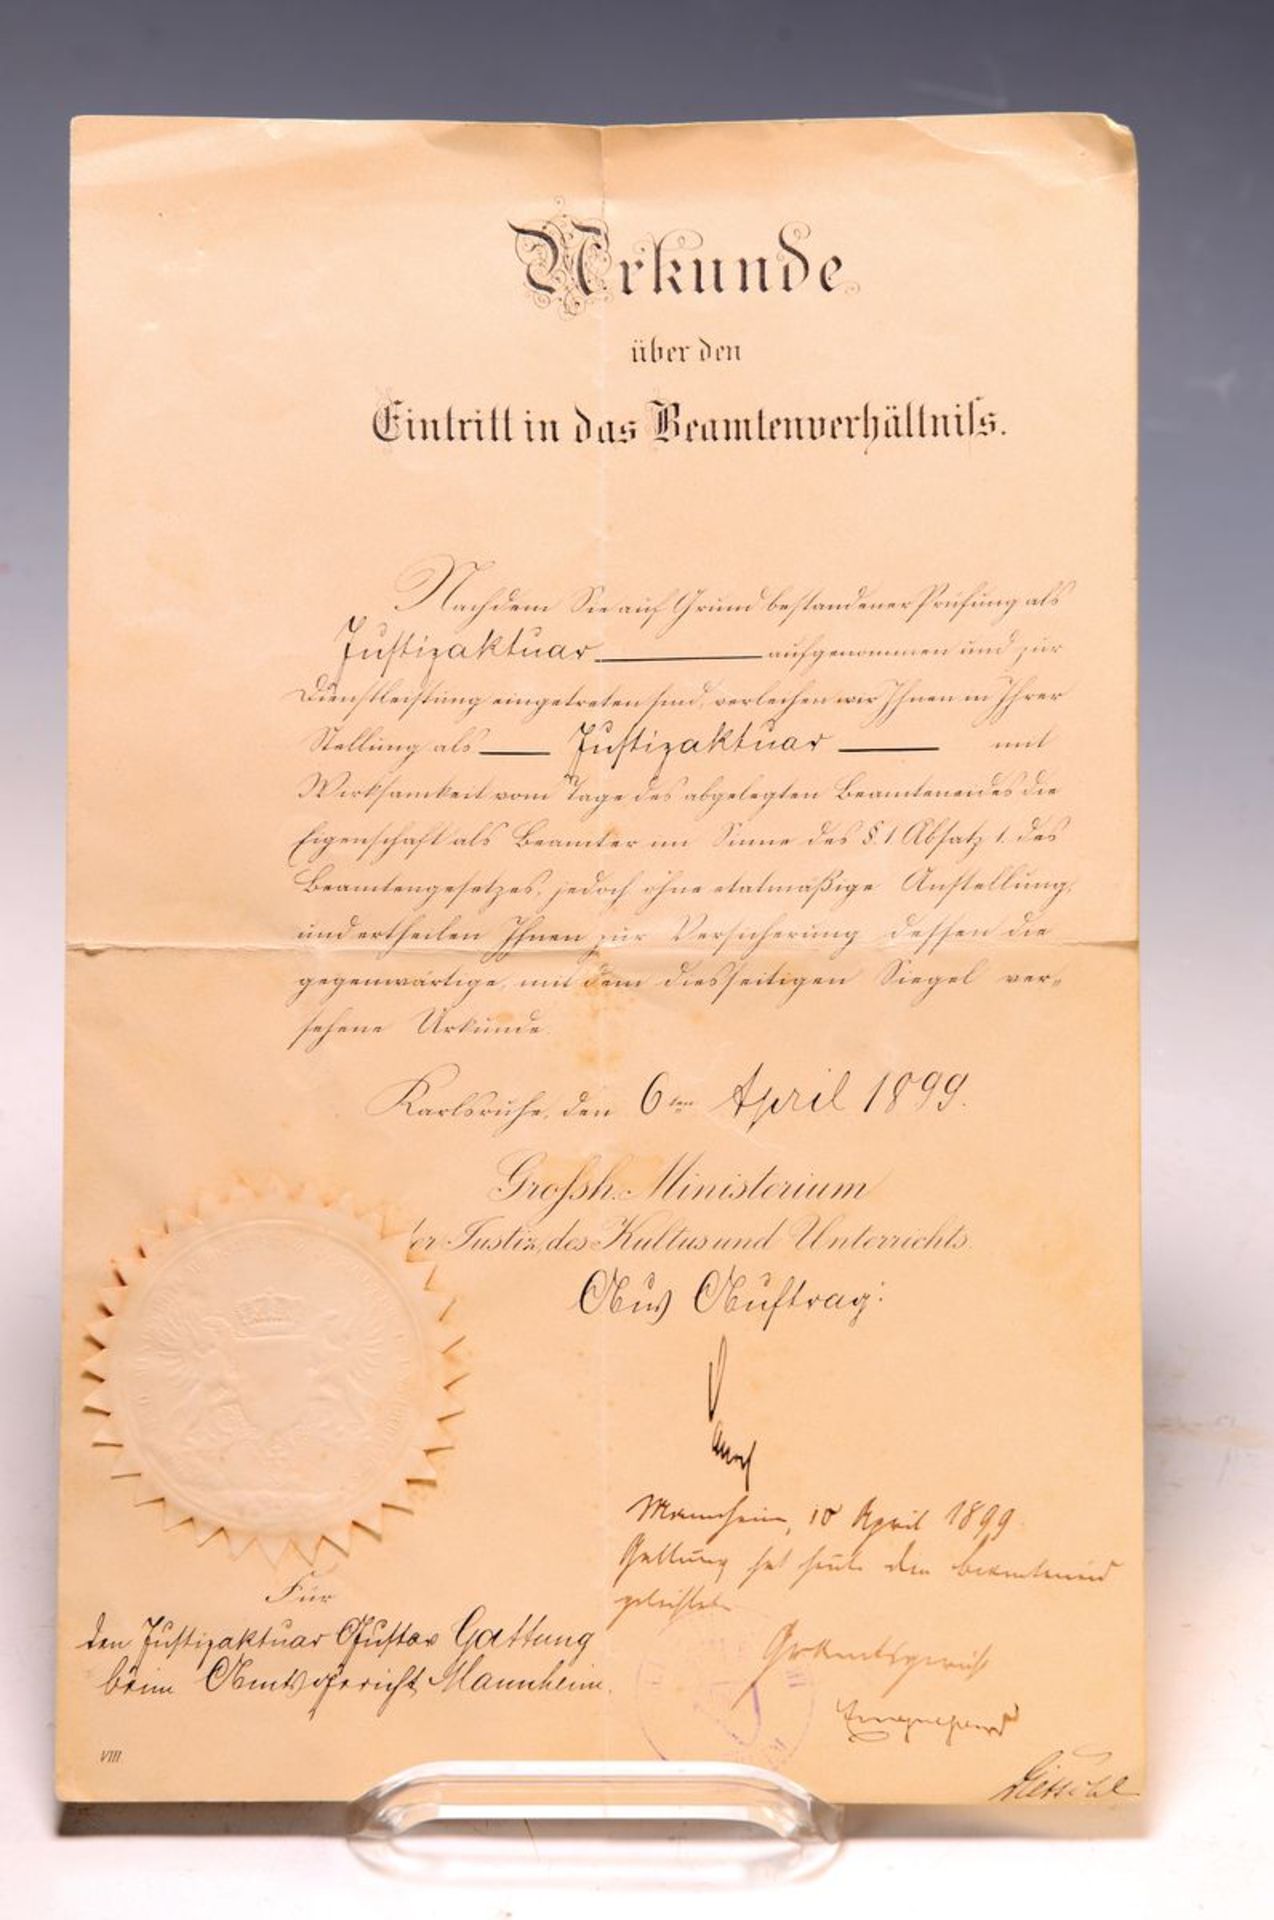 Urkunde
über den
Eintritt in das Beamtenverhältniſs.
Nachdem Sie auf Grund bestandener Prüfung als
Justizaktuar aufgenommen und zur
Dienstleistung eingetreten sind, verleihen wir Ihnen in Ihrer
Stellung als Justizaktuar mit
Wirksamkeit vom Tage des abgelegten Beamteneides die
Eigenschaft als Beamter im Sinne des §. 1 Absatz 1. des
Beamtengesetzes, jedoch ohne etatmäßige Anstellung,
und ertheilen Ihnen zur Versicherung dessen die
gegenwärtige, mit dem diesseitigen Siegel ver-
sehene Urkunde.
Karlsruhe, den 6ten April 1899.
Groſsh. Ministerium
der Justiz, des Kultus und Unterrichts.
Aus Auftrag:
Mannheim, 10 April 1899.
Gattung hat heute den Beamteneid
geleistet.
Gr. Amtsgericht
Für
den Justizaktuar Gustav Gattung
beim Amtsgericht Mannheim.
VIII